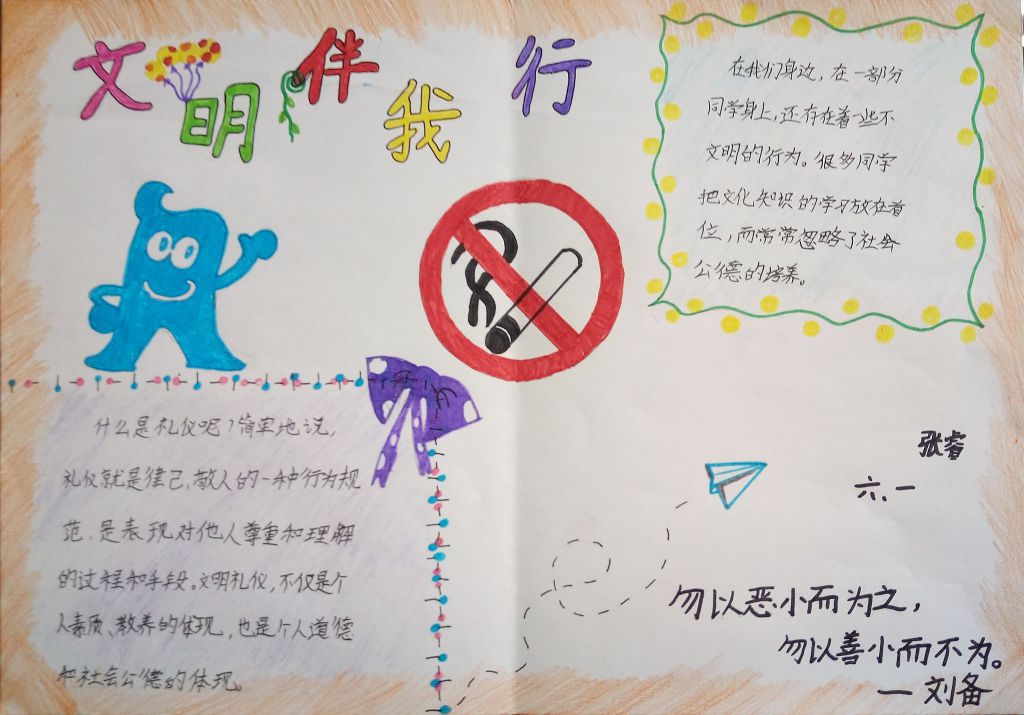 文明伴我行
在我们身边，在一部分
同学身上，还存在着一些不
文明的行为。很多同学
把文化知识的学习放在首
位，而常常忽略了社会
公德的培养。
什么是礼仪呢？简单地说，
礼仪就是律己、敬人的一种行为规
范，是表现对他人尊重和理解
的过程和手段。文明礼仪，不仅是个
人素质、教养的体现，也是个人道德
和社会公德的体现。
张睿
六、一
勿以恶小而为之，
勿以善小而不为。
— 刘备